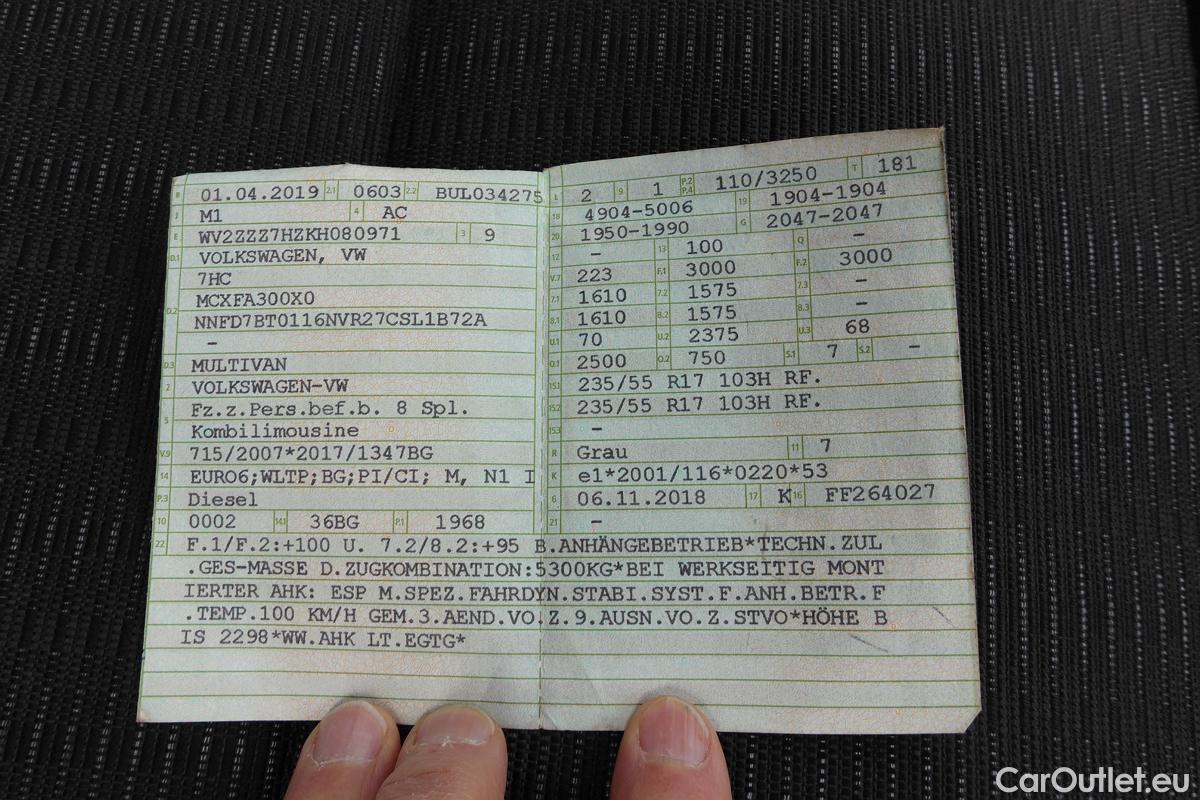 B 01.04.2019 2.1 0603 2.2 BUL034275
J M1 4 AC
E WV2ZZZ7HZKH080971 3 9
D.1 VOLKSWAGEN, VW
7HC
D.2 MCXFA300X0
NNFD7BT0116NVR27CSL1B72A
–
D.3 MULTIVAN
2 VOLKSWAGEN-VW
5 Fz.z.Pers.bef.b. 8 Spl.
Kombilimousine
V.9 715/2007*2017/1347BG
14 EURO6;WLTP;BG;PI/CI; M, N1 I
P.3 Diesel
10 0002 14.1 36BG P.1 1968
L 2 9 1 P.2 P.4 110/3250 T 181
18 4904-5006 19 1904-1904
20 1950-1990 G 2047-2047
12 – 13 100 Q –
V.7 223 F.1 3000 F.2 3000
7.1 1610 7.2 1575 7.3 –
8.1 1610 8.2 1575 8.3 –
U.1 70 U.2 2375 U.3 68
O.1 2500 O.2 750 S.1 7 S.2 –
15.1 235/55 R17 103H RF.
15.2 235/55 R17 103H RF.
15.3 –
R Grau 11 7
K e1*2001/116*0220*53
6 06.11.2018 17 K 16 FF264027
21 –
22 F.1/F.2:+100 U. 7.2/8.2:+95 B.ANHÄNGEBETRIEB*TECHN.ZUL
.GES-MASSE D.ZUGKOMBINATION:5300KG*BEI WERKSEITIG MONT
IERTER AHK: ESP M.SPEZ.FAHRDYN.STABI.SYST.F.ANH.BETR.F
.TEMP.100 KM/H GEM.3.AEND.VO.Z.9.AUSN.VO.Z.STVO*HÖHE B
IS 2298*WW.AHK LT.EGTG*
CarOutlet.eu